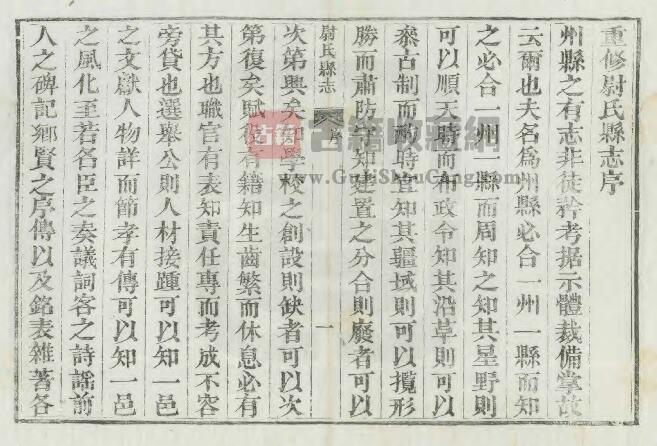 重修尉氏縣志序
州縣之有志非徒矜考据示體裁備掌故
云爾也夫名爲州縣必合一州一縣而知
之必合一州一縣而周知之知其星野則
可以順天時而布政令知其沿革則可以
叅古制而酌時宜知其疆域則可以攬形
勝而肅防守知建置之分合則廢者可以
尉氏縣志
序
一
次第興矣知學校之創設則缺者可以次
第復矣賦役有籍知生齒繁而休息必有
其方也職官有表知責任專而考成不容
旁貸也選舉公則人材接踵可以知一邑
之文獻人物詳而節孝有傳可以知一邑
之風化至若名臣之奏議詞客之詩謡前
人之碑記鄉賢之序傳以及銘表雜著各
古籍
古籍收藏網
www.GuJiShouCang.com